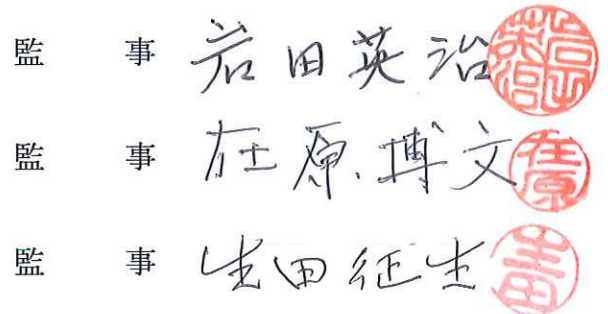 監 事 岩田英治
監 事 在原博文
監 事 生田征生